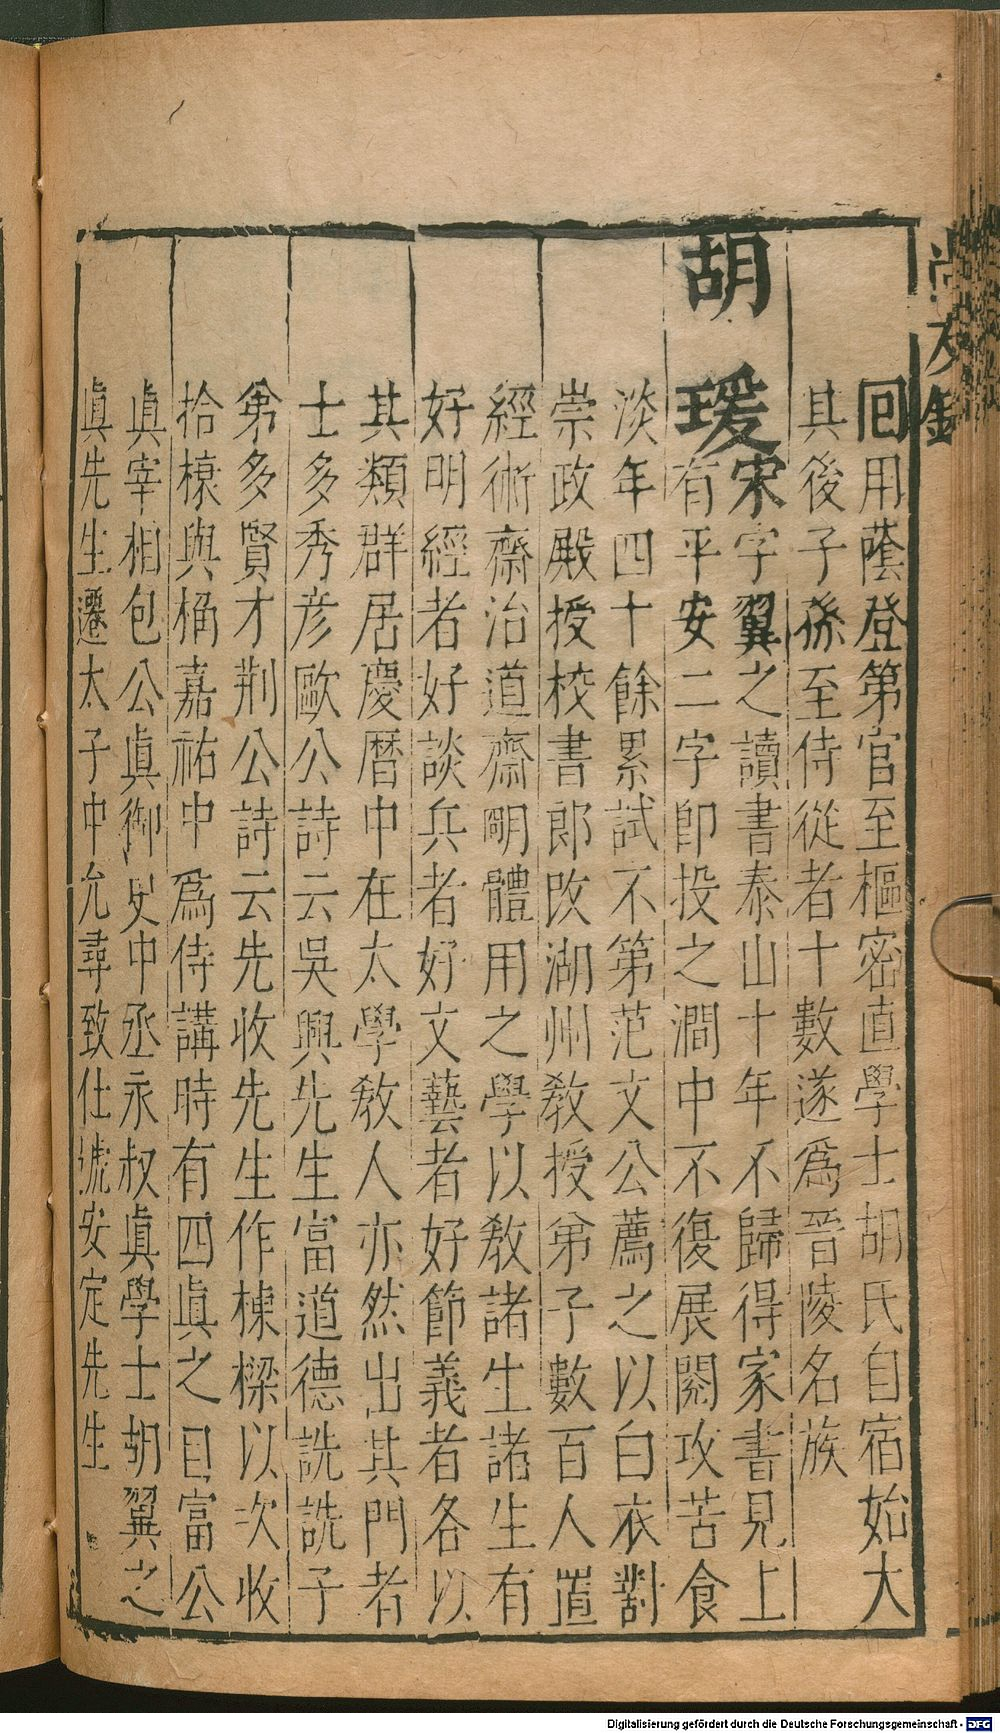 回用蔭登第官至樞密直學士胡氏自宿始大
其後子孫至侍從者十數遂爲晉陵名族
胡瑗宋字翼之讀書泰山十年不歸得家書見上
有平安二字卽投之澗中不復展閱攻苦食
淡年四十餘累試不第范文公薦之以白衣對
崇政殿授校書郎改湖州敎授弟子數百人置
經術齋治道齋明體用之學以敎諸生諸生有
好明經者好談兵者好文藝者好節義者各以
其類群居慶曆中在太學敎人亦然出其門者
士多秀彥歐公詩云吳興先生富道德詵詵子
弟多賢才荆公詩云先收先生作棟樑以次收
拾榱與桷嘉祐中爲侍講時有四眞之目富公
眞宰相包公眞御史中丞永叔眞學士胡翼之
眞先生遷太子中允尋致仕號安定先生
尚友錄
Digitalisierung gefördert durch die Deutsche Forschungsgemeinschaft - DFG